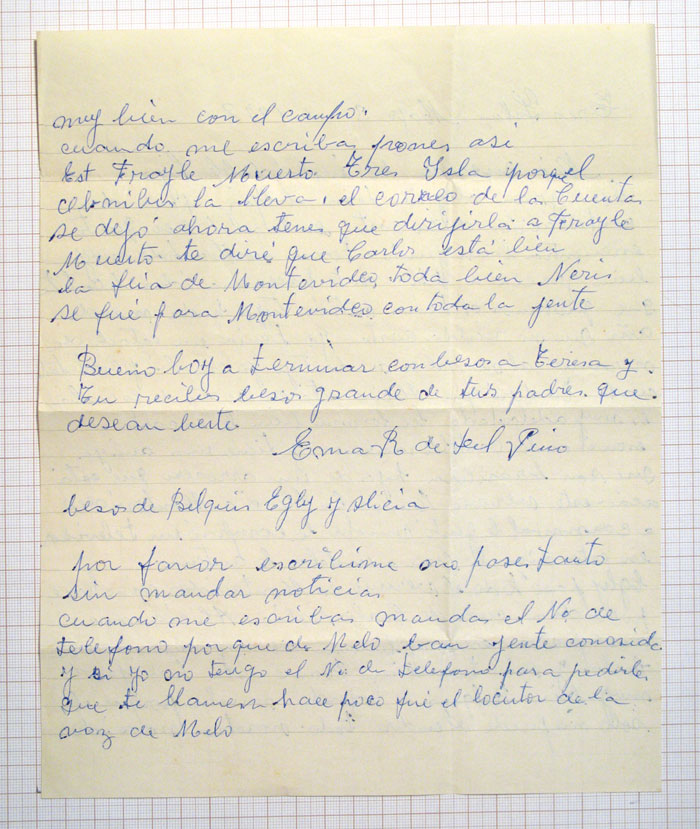 muy bien con el campo.
cuando me escribas pones asi
Est Frayle Muerto Tres Ysla porque el
la lleva, el correo de las Cuentas
se dejó ahora tenes que dirijirla a Frayle
Muerto te diré que Carlos está bien
la flia de Montevideo, toda bien Neris
se fué para Montevideo con toda la jente
Bueno boy a terminar con besos a Teresa y
Tu recibes besos grande de tus padres que
desean berte.
Ema R de del Pino
besos de Belquis Egly y Alicia
por favor escribime no pases tanto
sin mandar noticias
cuando me escribas mandas el No de
telefono porque de Melo ban jente conosida
y si yo no tengo el No de telefono para pedirles
que te llamen hace poco fué el locutor de la
voz de Melo